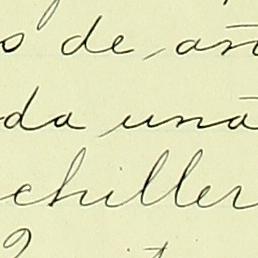 s de añ
da una
chiller